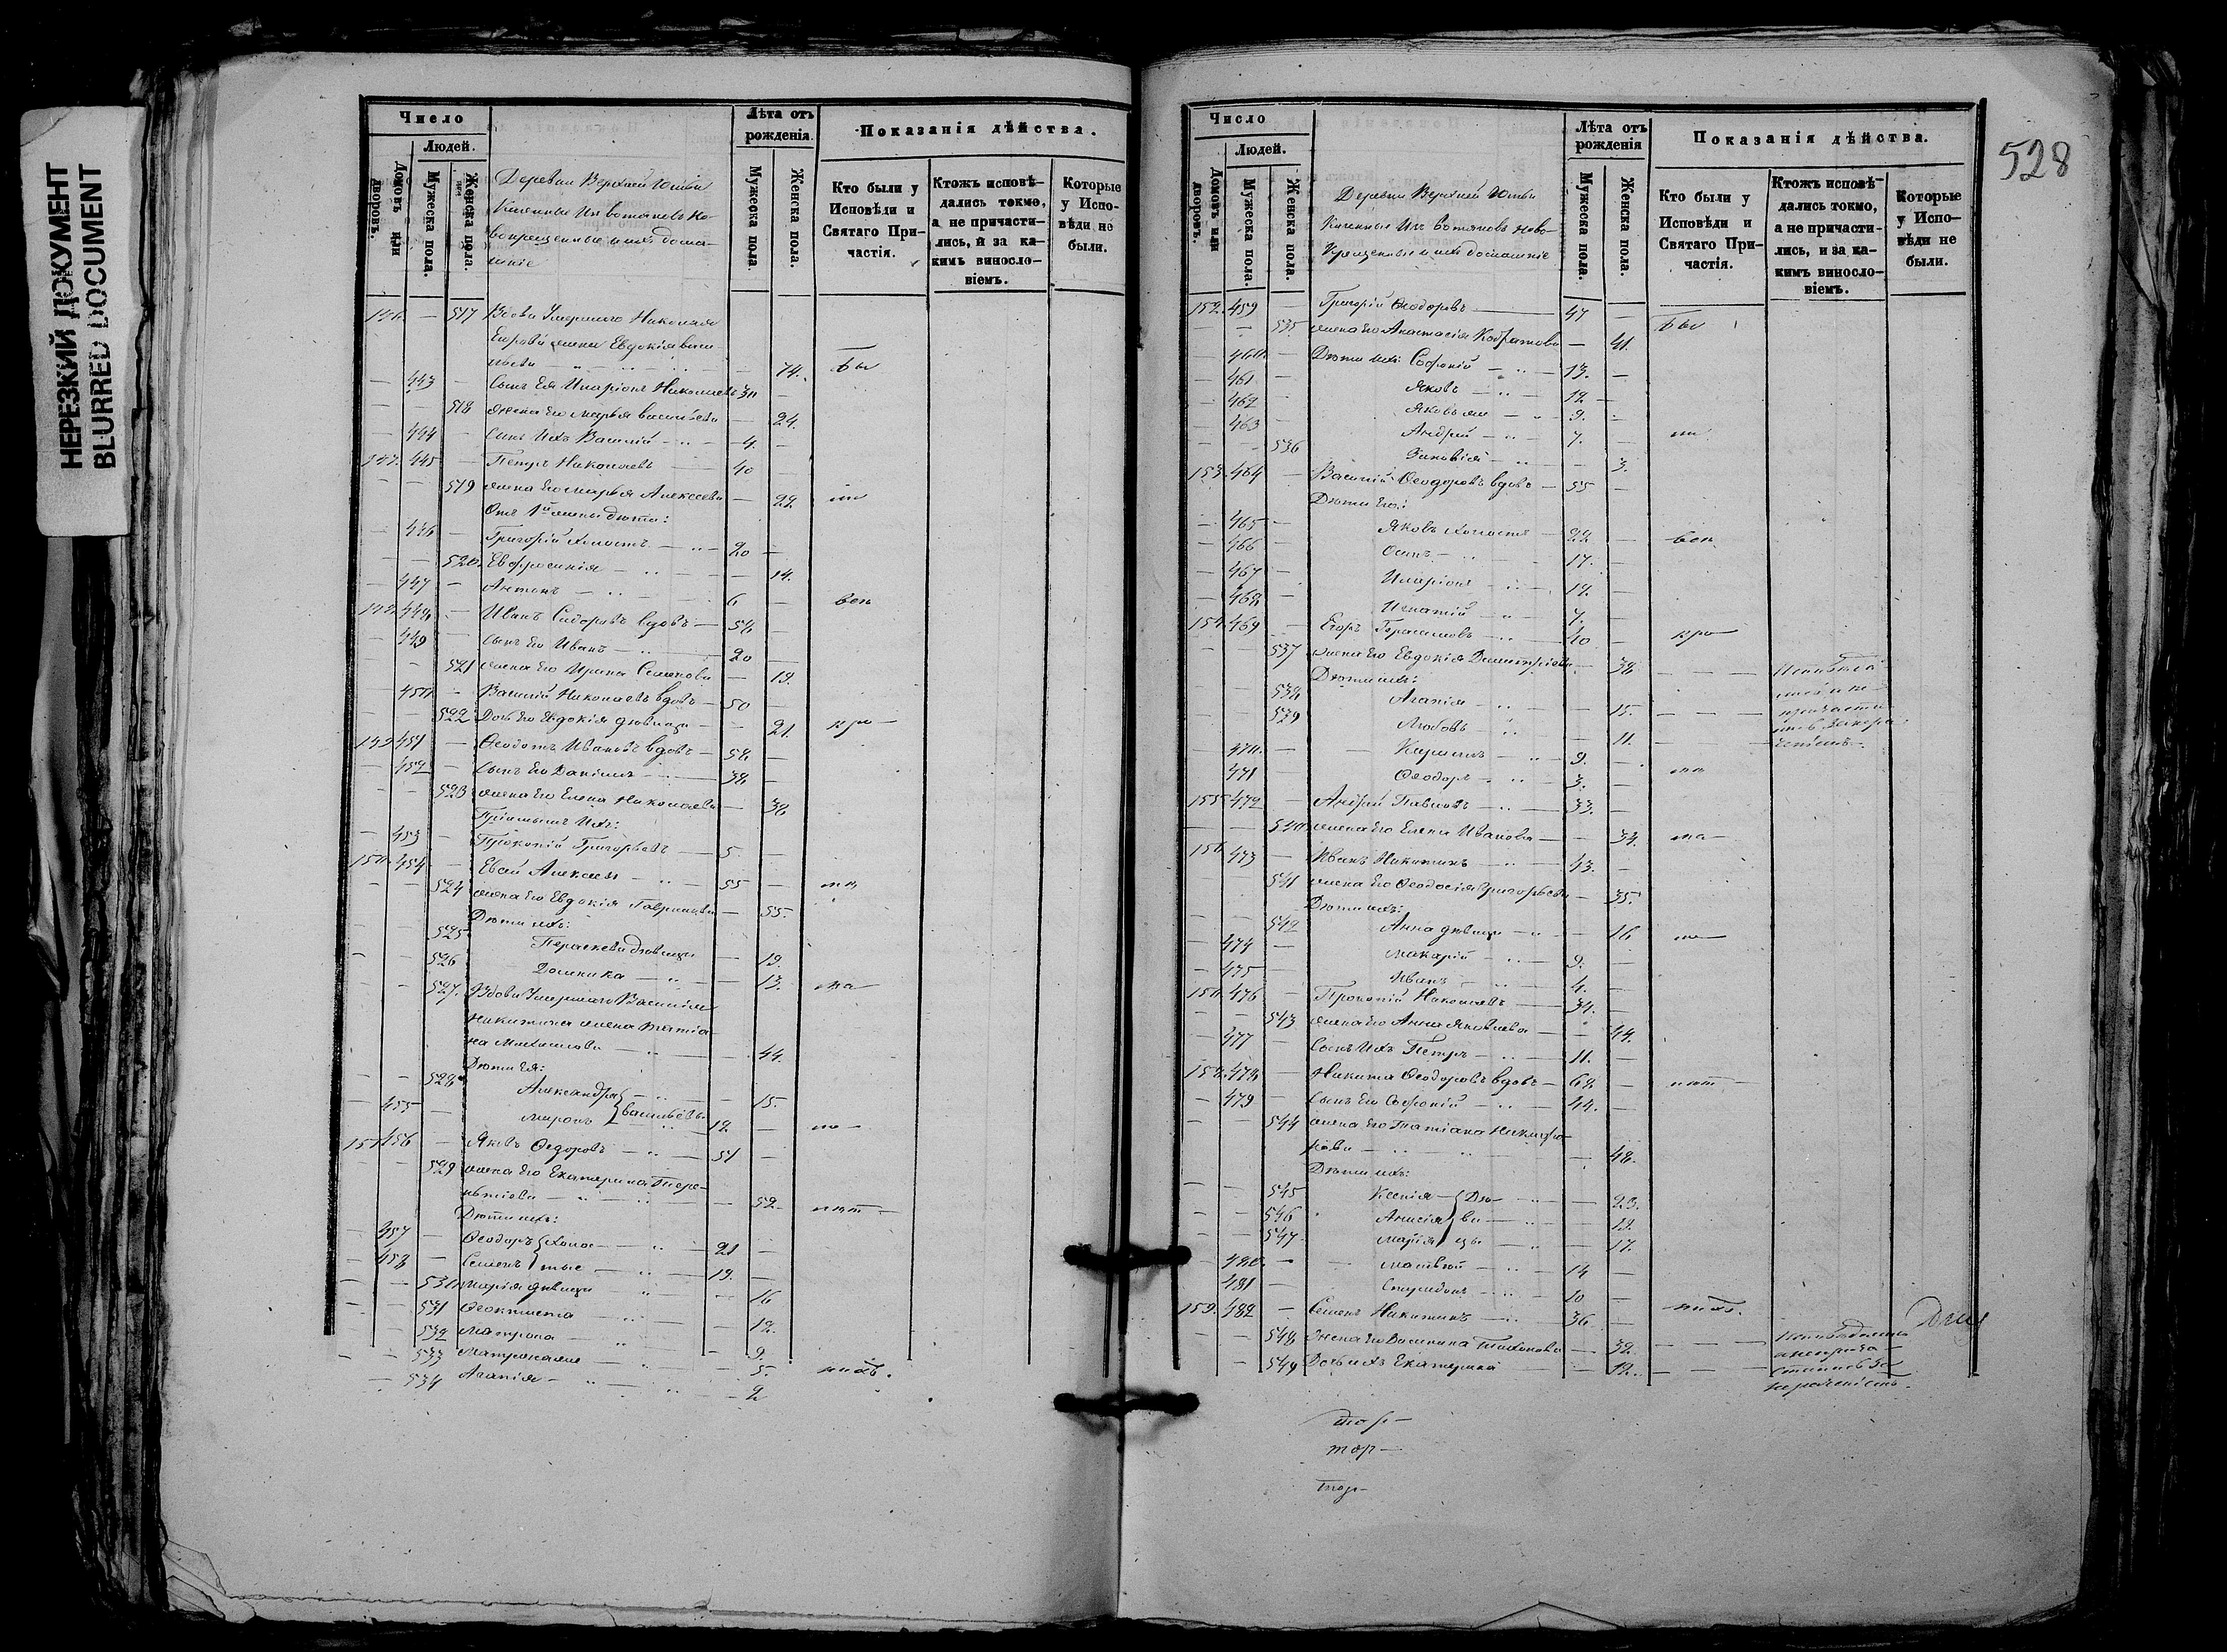 НЕРЕЗКИЙ ДОКУМЕНТ
BLURRED DOCUMENT
Число
Людей.
Домовъ или дворовъ.
Мужеска пола.
Женска пола.
Деревни Верхней Юмьи
Казенные Из вотяковъ но-
вокрещенные и их дома-
шніе
Лѣта отъ рожденія.
Мужеска пола.
Женска пола.
Показанія дѣйства.
Кто были у Исповѣди и Святаго При-частія.
Ктожъ исповѣ-дались токмо, а не причасти-лись, и за ка-кимъ винословіемъ.
Которые у Испо-вѣди не были.
146. — 517 Вдова Умершаго Николая
Егрова жена Евдокія Васи-
льева — 74. бы
— 443 — Сынъ Ея Иларіонъ Николаевъ 30 —
— — 518 жена его Марья Васильева — 24.
— 444 — Сынъ Ихъ Василій — 4. —
147. 445 — Петръ Николаевъ 40
— — 519 жена его Марья Алексѣева — 22. ли
Отъ 1й жены дѣти:
— 446 — Григорій холостъ — 20 —
— — 520. Евфросинія — 14.
— 447 — Антонъ — 6 — вси
148. 448. — Иванъ Сидоровъ вдовъ — 54 —
— 449 — сынъ его Иванъ — 20 —
— — 521 жена его Ирина Семенова — 19.
— 450. — Василій Николаевъ вдовъ — 50 —
— — 522 Дочь его Евдокія дѣвица — 21. кро—
149 451 — Ѳеодотъ Ивановъ вдовъ — 58 —
— 452 — сынъ его Даніилъ — 38 —
— — 523 жена его Елена Николаева — 38
Пріемышъ Ихъ:
— 453 — Прокопій Григорьевъ — 5 —
150. 454 — Евсей Алексѣев — 55 —
— — 524 жена его Евдокія Гаврилова — 55.
Дѣти ихъ:
— — 525 Параскева дѣвица — 19.
— — 526 Домника — 13. ма—
— — 527. Вдова Умершаго Василія
Никитина жена Татіа-
на Михайлова — 44.
Дѣти Ея:
— — 528 Александра — 15.
— 455 — Миронъ } Васильевы 12. —
151 456 — Яковъ Ѳедоровъ — 51 —
— — 529 жена его Екатерина Тере-
нтіева — 52.
Дѣти ихъ:
— 457 — Ѳеодоръ } холо- — 21 —
— 458 — Семенъ } тые — 19. —
— — 530. Марія дѣвица — 16
— — 531 Ѳеоктиста — 12.
— — 532 Матрона — 9.
— — 533 Матрона же — 5.
— — 534 Агапія — 2
528
Число
Людей.
Домовъ или дворовъ.
Мужеска пола.
Женска пола.
Деревни Верхней Юмьи
Казенные Изъ Вотяковъ ново-
крещенные и ихъ домашніе
Лѣта отъ рожденія
Мужеска пола.
Женска пола.
Показанія дѣйства.
Кто были у Исповѣди и Святаго При-частія.
Ктожъ исповѣ-дались токмо, а не причасти-лись, и за ка-кимъ винословіемъ.
Которые у Испо-вѣди не были.
152. 459 — Григорій Ѳеодоровъ — 47 —
— — 535 жена его Анастасія Кодратова — 41. бы
— 460. — Дѣти ихъ: Софоній — 13. —
— 461 — Яковъ — 12 —
— 462 — Яковъ же — 9. —
— 463 — Андрей — 7. — ли
— — 536 Зиновія — 3.
153. 464 — Василій Ѳеодоровъ вдовъ — 55 —
Дѣти его:
— 465 — Яковъ холостъ — 22 — вси
— 466 — Осипъ — 17. —
— 467 — Иларіонъ — 14. —
— 468 — Игнатій — 7. —
154. 469 — Егоръ Герасимовъ — 40 — кро—
— — 537 жена его Евдокія Димитріева — 38 — — —
Дѣти ихъ:
— — 538 Агапія — 15. — — —
— — 539 Любовь — 11. —
— 470. — Кирилъ — 9. —
— 471 — Ѳеодоръ — 3. —
155 472 — Андрей Павловъ — 33. —
— — 540. жена его Елена Иванова — 34. ма—
156 473 — Иванъ Никитинъ — 43. —
541 жена его Ѳеодосія Григорьева — 35.
Дѣти ихъ:
— — 542 Анна дѣвица — 16
— 474 — Макарій — 9. —
— 475 — Иванъ — 4. —
476 — Прокопій Николаевъ — 34. —
— — 543 жена его Анна Яковлева — 44.
— 477 — Сынъ Ихъ Петръ — 11. —
158. 478. — Никита Ѳеодоровъ вдовъ — 68 —
— 479 — сынъ его Софоній — 44. —
— — 544 жена его Татіана Никифо-
рова — 48.
Дѣти ихъ:
— — 545 Ксенія } Дѣ- — 23.
— — 546 Анисія } ви- —
— — 547 Марія } цы — 17.
— 480. — Матвѣй — 14 —
— 481 — Спиридонъ — 10 —
159. 482 — Семенъ Никитинъ — 36. —
— — 548 жена его Василиса Тихонова — 32. — —
— 549 Дочь ихъ Екатерина — 12. — —